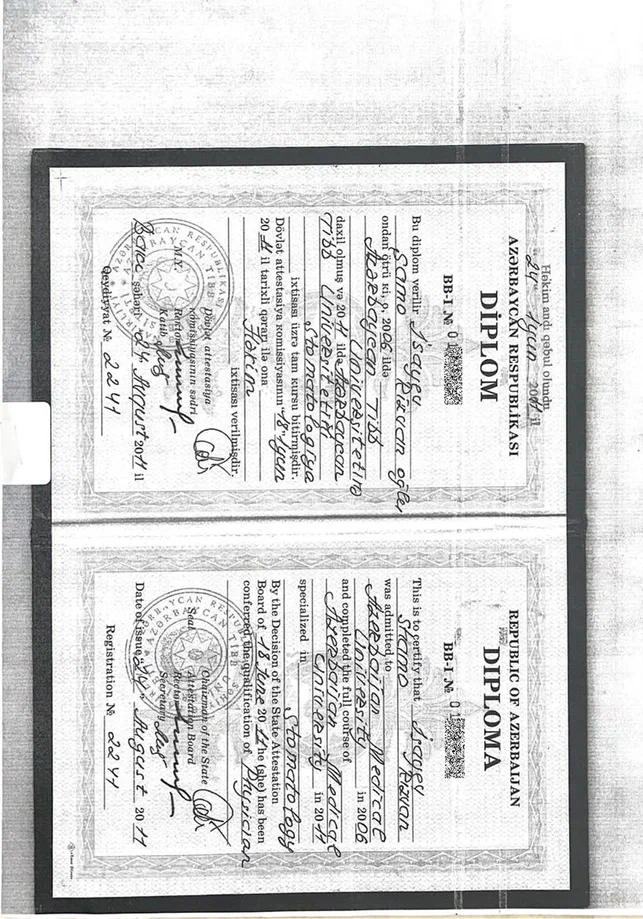 Həkim andı qəbul olundu
24 iyun 2011 il
AZƏRBAYCAN RESPUBLİKASI
DİPLOM
BB-I № 0
Bu diplom verilir İsayev
Şamo Rizvan oğlu
ondan ötrü ki, o, 2006 ildə
Azərbaycan Tibb
Universitetinə
daxil olmuş və 2011 ildə Azərbaycan
Tibb Universitetinin
Stomatologiya
ixtisası üzrə tam kursu bitirmişdir.
Dövlət attestasiya komissiyasının "18" iyun
2011 il tarixli qərarı ilə ona
Həkim
ixtisası verilmişdir.
Dövlət attestasiya
komissiyasının sədri
M.Y. Rektor
Katib
Bakı şəhəri 24 August 2011 il
Qeydiyyat № 2241
REPUBLIC OF AZERBAIJAN
DIPLOMA
BB-I № 0
This is to certify that Isayev
Shamo Rizvan
was admitted to in 2006
Azerbaijan Medical
University
and completed the full course of
Azerbaijan Medical
University in 2011
specialized in
Stomatology
By the Decision of the State Attestation
Board of 18 June 2011 he (she) has been
conferred the qualification of Physician
Chairman of the State
Attestation Board
Seal Rector
Secretary
Date of issue "24" August 2011
Registration № 2241